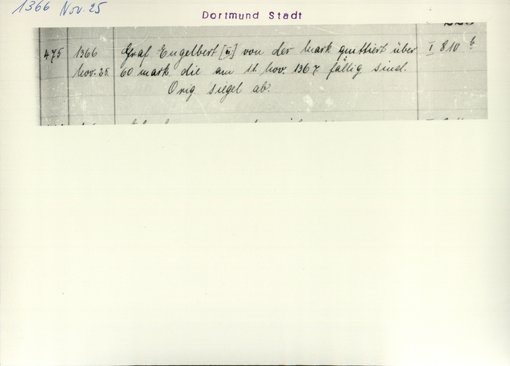 1366 Nov 25
Dortmund Stadt
475 1366 Graf Engelbert von der Mark quittiert über I 810
Nov. 25 60 mark die am 11 Nov. 1367 fällig sind.
Orig Siegel ab.